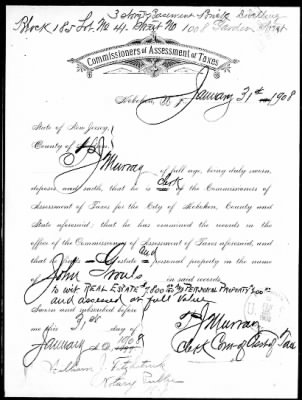 3 story & Basement Brick Dwelling
Block 185 Lot No 4. Street No 1008 Garden Street
Commissioners of Assessment of Taxes.
Hoboken, N. J. January 31st 1908
State of New Jersey,
County of
T J Murray of full age, being duly sworn,
deposes and saith, that he is Clerk of the Commissioners of
Assessment of Taxes for the City of Hoboken, County and
State aforesaid; that he has examined the records in the
office of the Commissioners of Assessment of Taxes aforesaid, and
that he finds Real Estate and personal property in the name
of John in said records
to wit REAL ESTATE PERSONAL PROPERTY
and assessed at full value
Sworn and subscribed before
me this 31st day of
January A.D. 1908
T J Murray
Clerk Com of Asst of Tax
William J
Notary Public